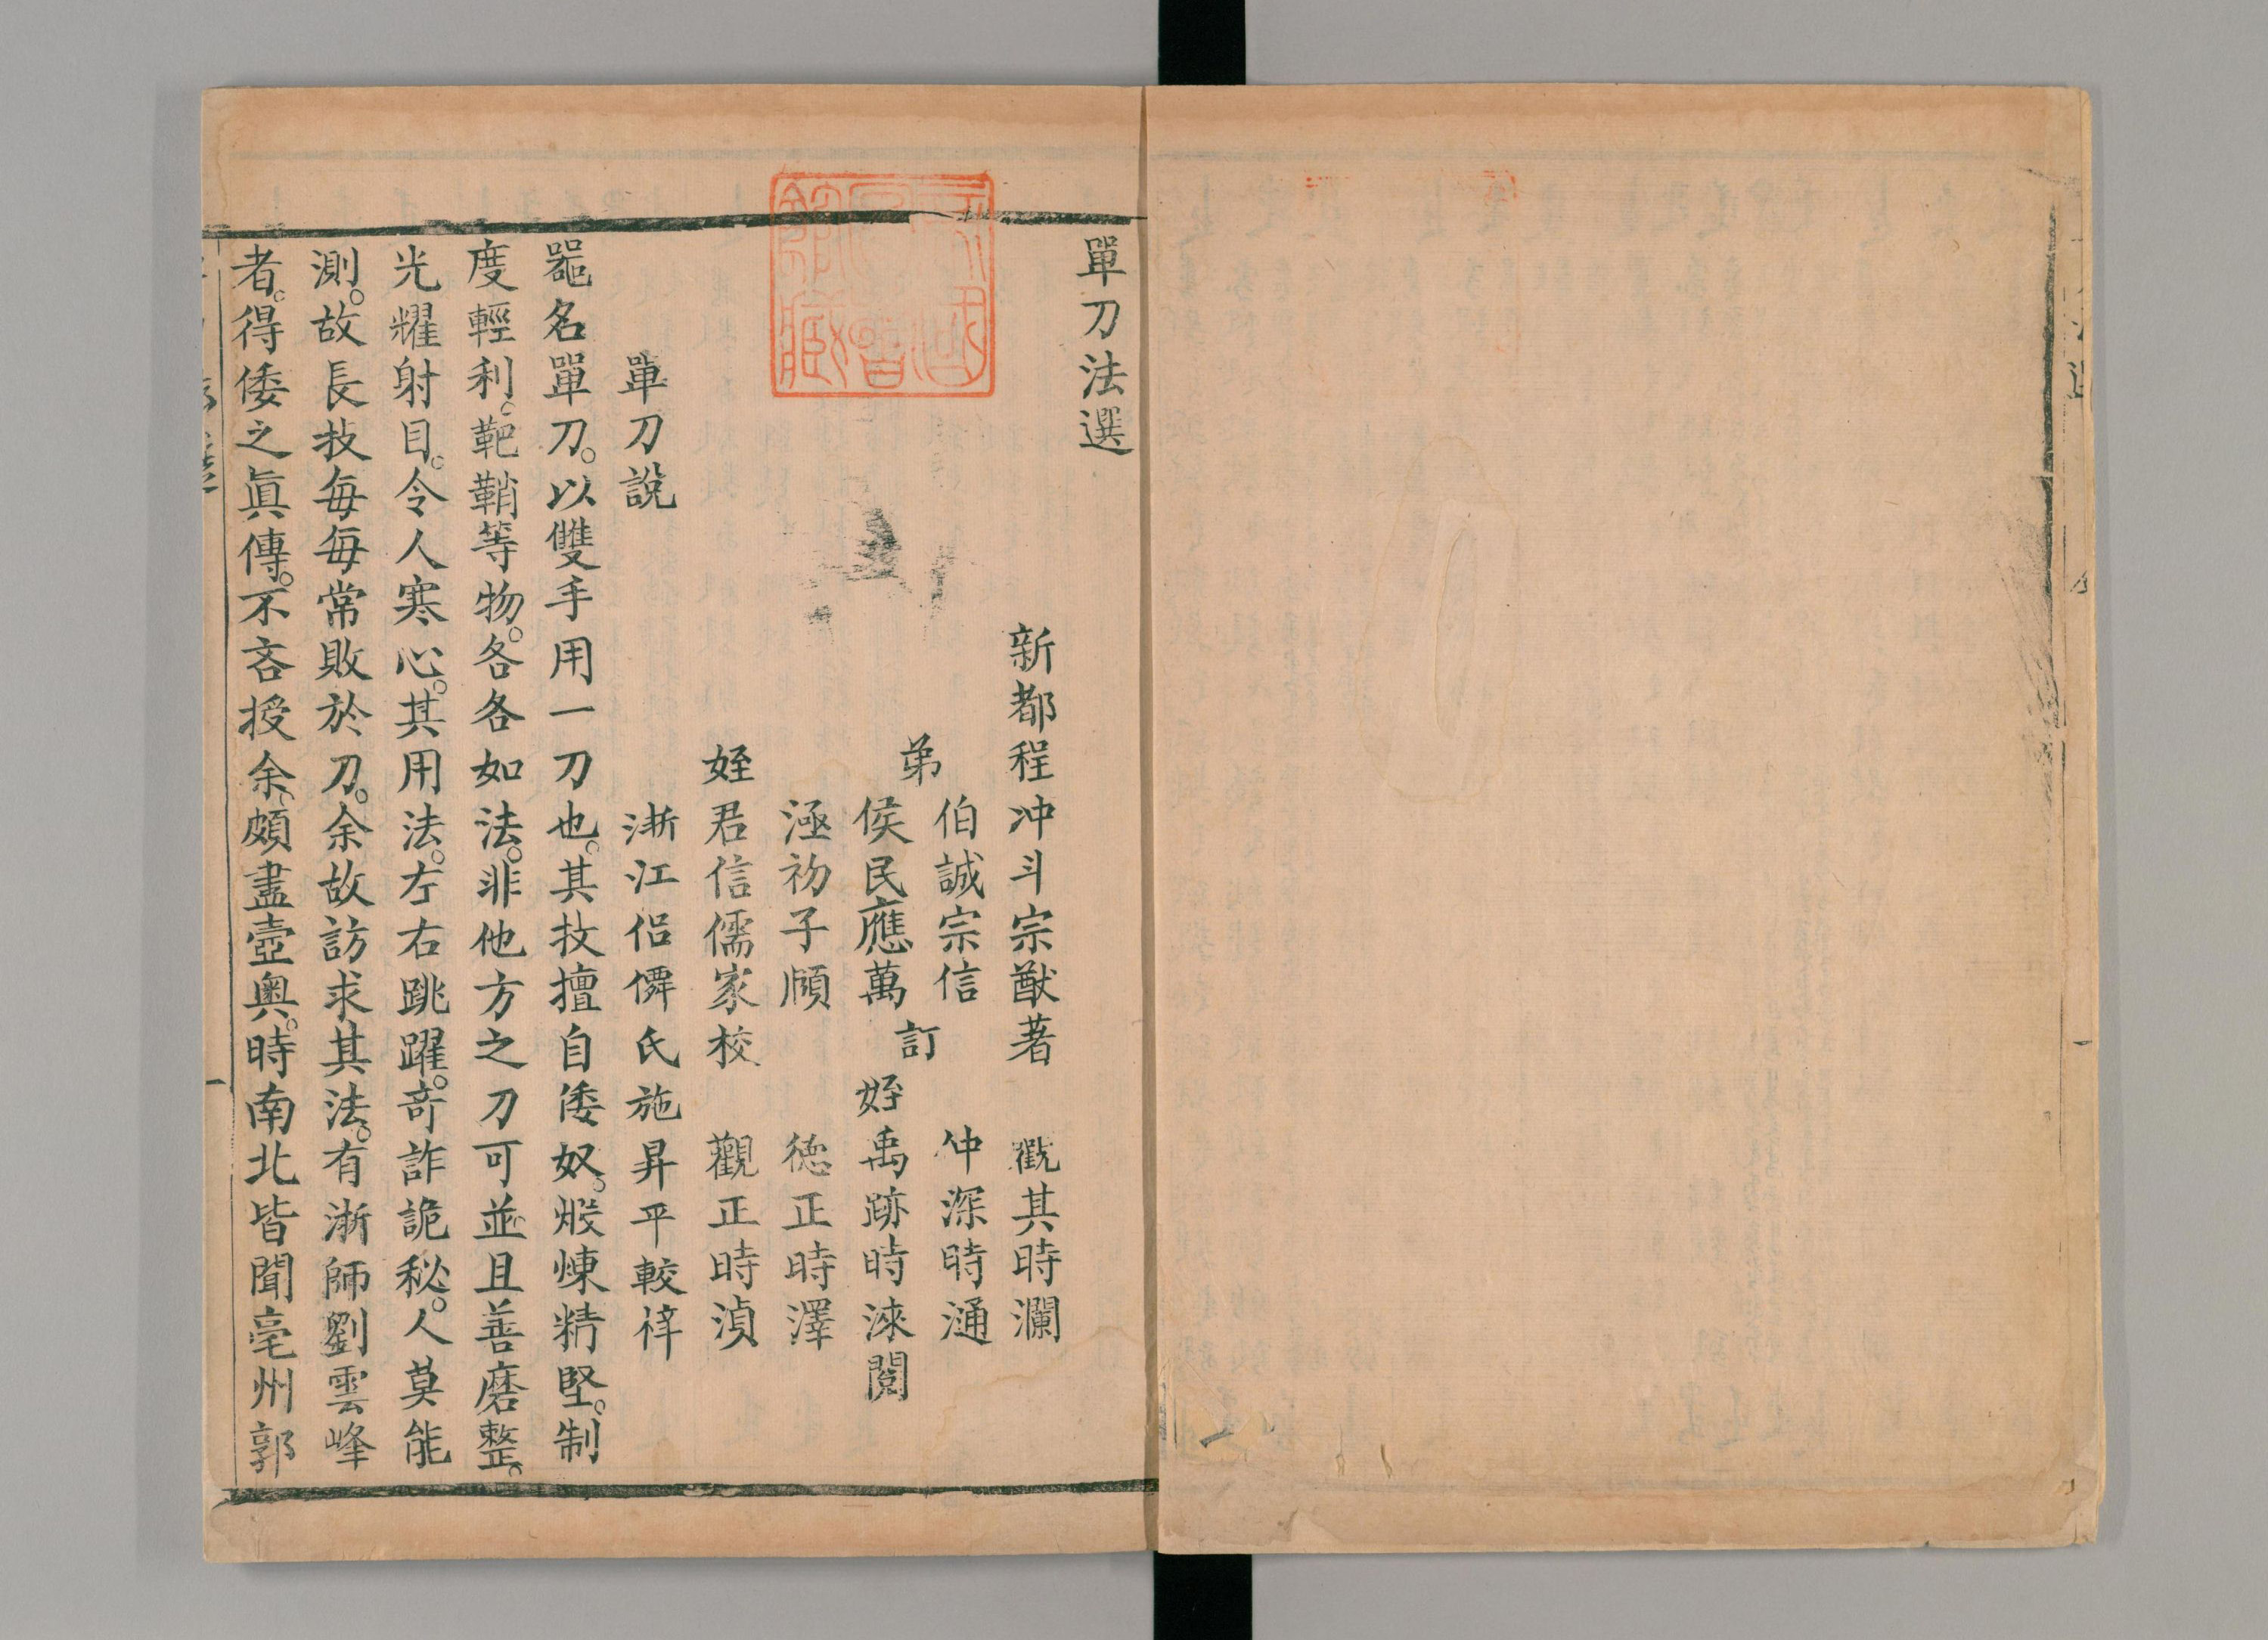 單刀法選
新都程冲斗宗猷著　戳其時瀾
弟
伯誠宗信　仲深時涌
侯民應萬訂　姪禹跡時淶閱
涵初子頎　德正時澤
姪君信儒家校　觀正時湞
浙江侶僲氏施昇平較梓
單刀說
器名單刀。以雙手用一刀也。其技擅自倭奴。煅煉精堅。制
度輕利。靶鞘等物。各各如法。非他方之刀可並。且善磨整。
光耀射目。令人寒心。其用法。左右跳躍。奇詐詭秘。人莫能
測。故長技每每常敗於刀。余故訪求其法。有浙師劉雲峰
者。得倭之眞傳。不吝授余。頗盡壼奧。時南北皆聞亳州郭